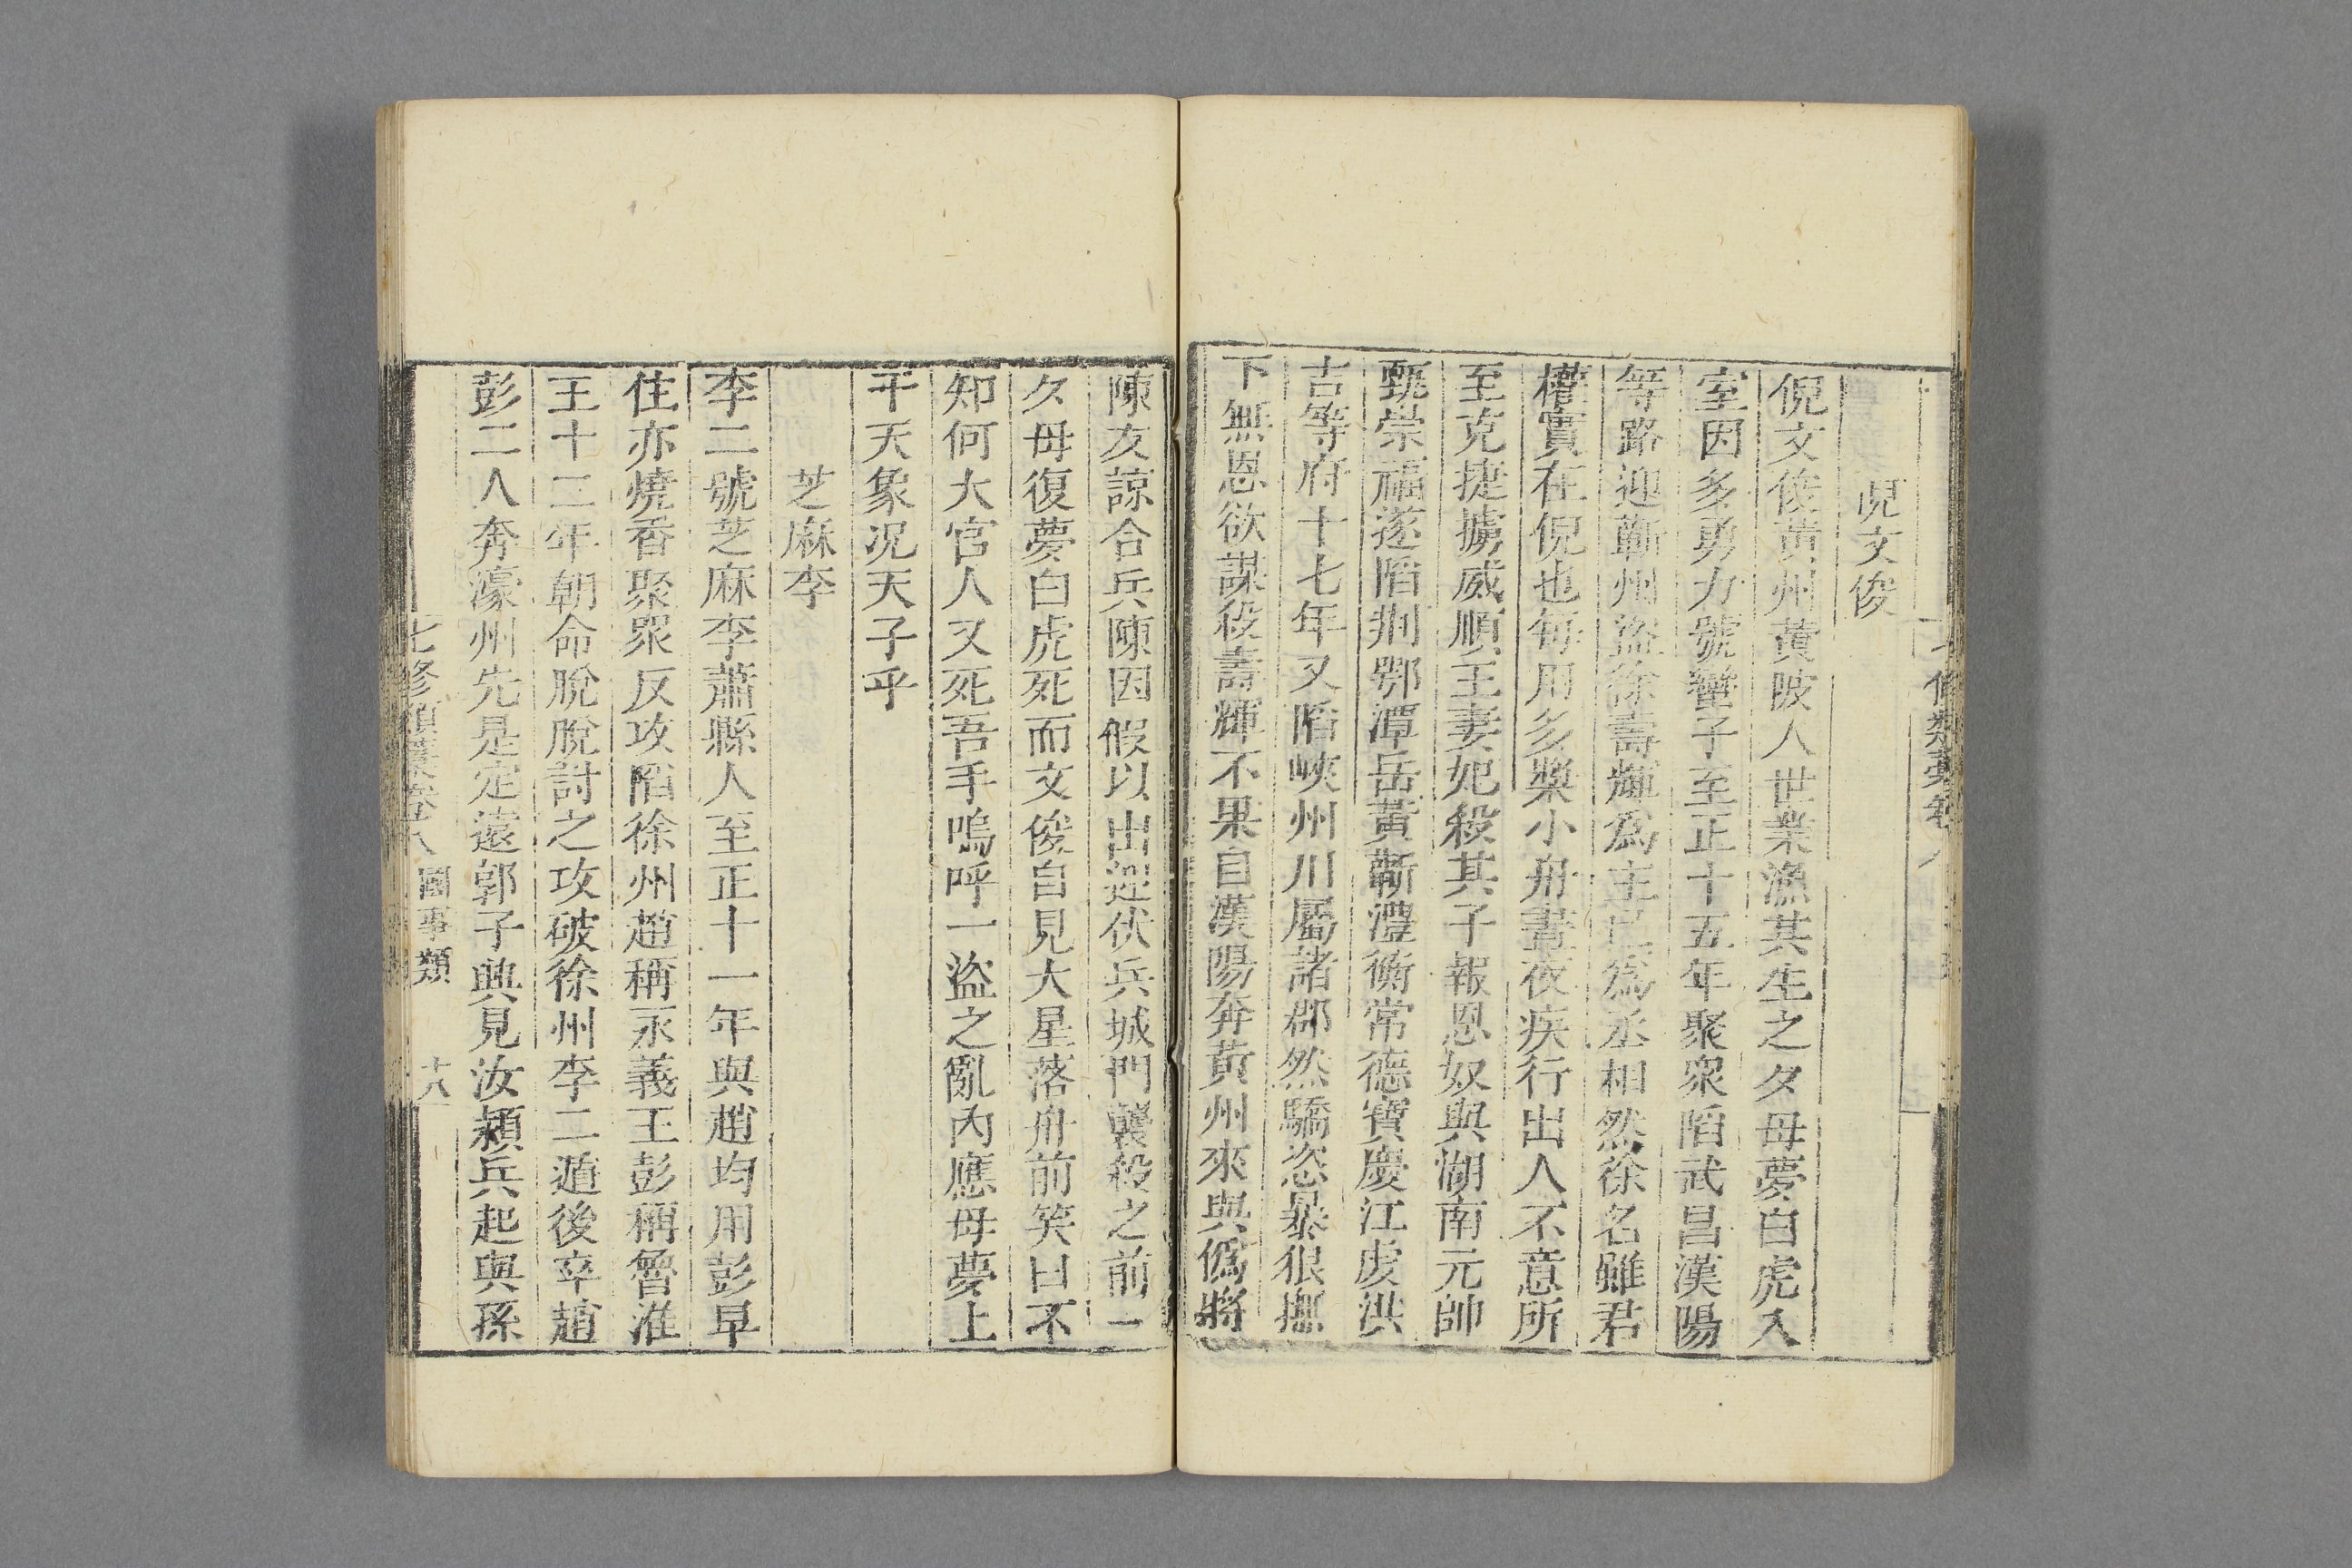 倪文俊
倪文俊黃州黃陂人世業漁其生之夕母夢白虎入
室因多勇力號蠻子至正十五年聚衆陷武昌漢陽
等路迎蘄州盜徐壽輝爲主已爲丞相然徐名雖君
權實在倪也每用多槳小舟晝夜疾行出人不意所
至克捷擄威順王妻妃殺其子報恩奴與湖南元帥
甄崇福遂陷荆鄂潭岳黃蘄澧衡常德寶慶江虔洪
吉等府十七年又陷峽州川屬諸郡然驕恣暴狠撫
下無恩欲謀殺壽輝不果自漢陽奔黃州來與僞將
陳友諒合兵陳因假以出迎伏兵城門襲殺之前一
夕母復夢白虎死而文俊自見大星落舟前笑曰不
知何大官人又死吾手嗚呼一盜之亂內應母夢上
干天象况天子乎
芝麻李
李二號芝麻李蕭縣人至正十一年與趙均用彭早
住亦燒香聚衆反攻陷徐州趙稱永義王彭稱魯淮
王十二年朝命脫脫討之攻破徐州李二遁後卒趙
彭二人奔濠州先是定遠郭子興見汝潁兵起與孫
七修類藁卷八 國事類 十八